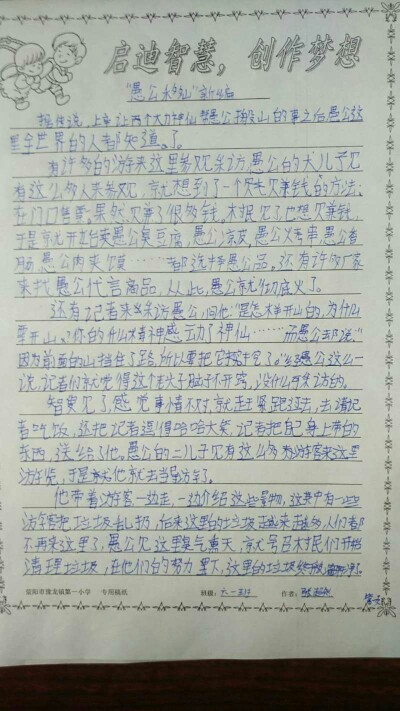 启迪智慧，创作梦想
"愚公移山"新编
据传说，上帝让两个大力神仙帮愚公移山的事之后愚公这
里全世界的人都知道了。
有许多的游客来这里参观采访愚公的大儿子见
有这么多人来参观，就想到了一个赚钱的方法：
在门口售票，果然赚了很多钱，村民见了也想赚钱，
于是就开始卖愚公臭豆腐，愚公凉皮，愚公烤串，愚公香
肠，愚公肉夹馍……都选择愚公品。还有许多厂家
来找愚公代言商品，从此，愚公就彻底火了。
还有记者来采访愚公，问他"是怎样开山的，为什么
要开山，你的什么精神感动了神仙……而愚公却说：
因为前面的山挡住了路，所以要把它挖掉了。"经愚公这么一
说，记者们就觉得这个老头子脑子不开窍，没什么好采访的。
智叟见了，感觉事情不对，就赶紧跑过去，去请记
者吃饭，还把记者逗得哈哈大笑，记者把自己身上带的
东西，送给了他。愚公的二儿子见有这么多游客来这里
游览，于是他就去当导游了。
他带着游客一边走，一边介绍这些景物，这其中有一些
游客把垃圾乱扔，后来这里的垃圾越来越多，人们都
不再来这里了，愚公见这里臭气熏天，就号召村民们开始
清理垃圾，在他们的努力下，这里的垃圾终于清理干净了。
荥阳市豫龙镇第一小学 专用稿纸 班级：六.一班 作者：